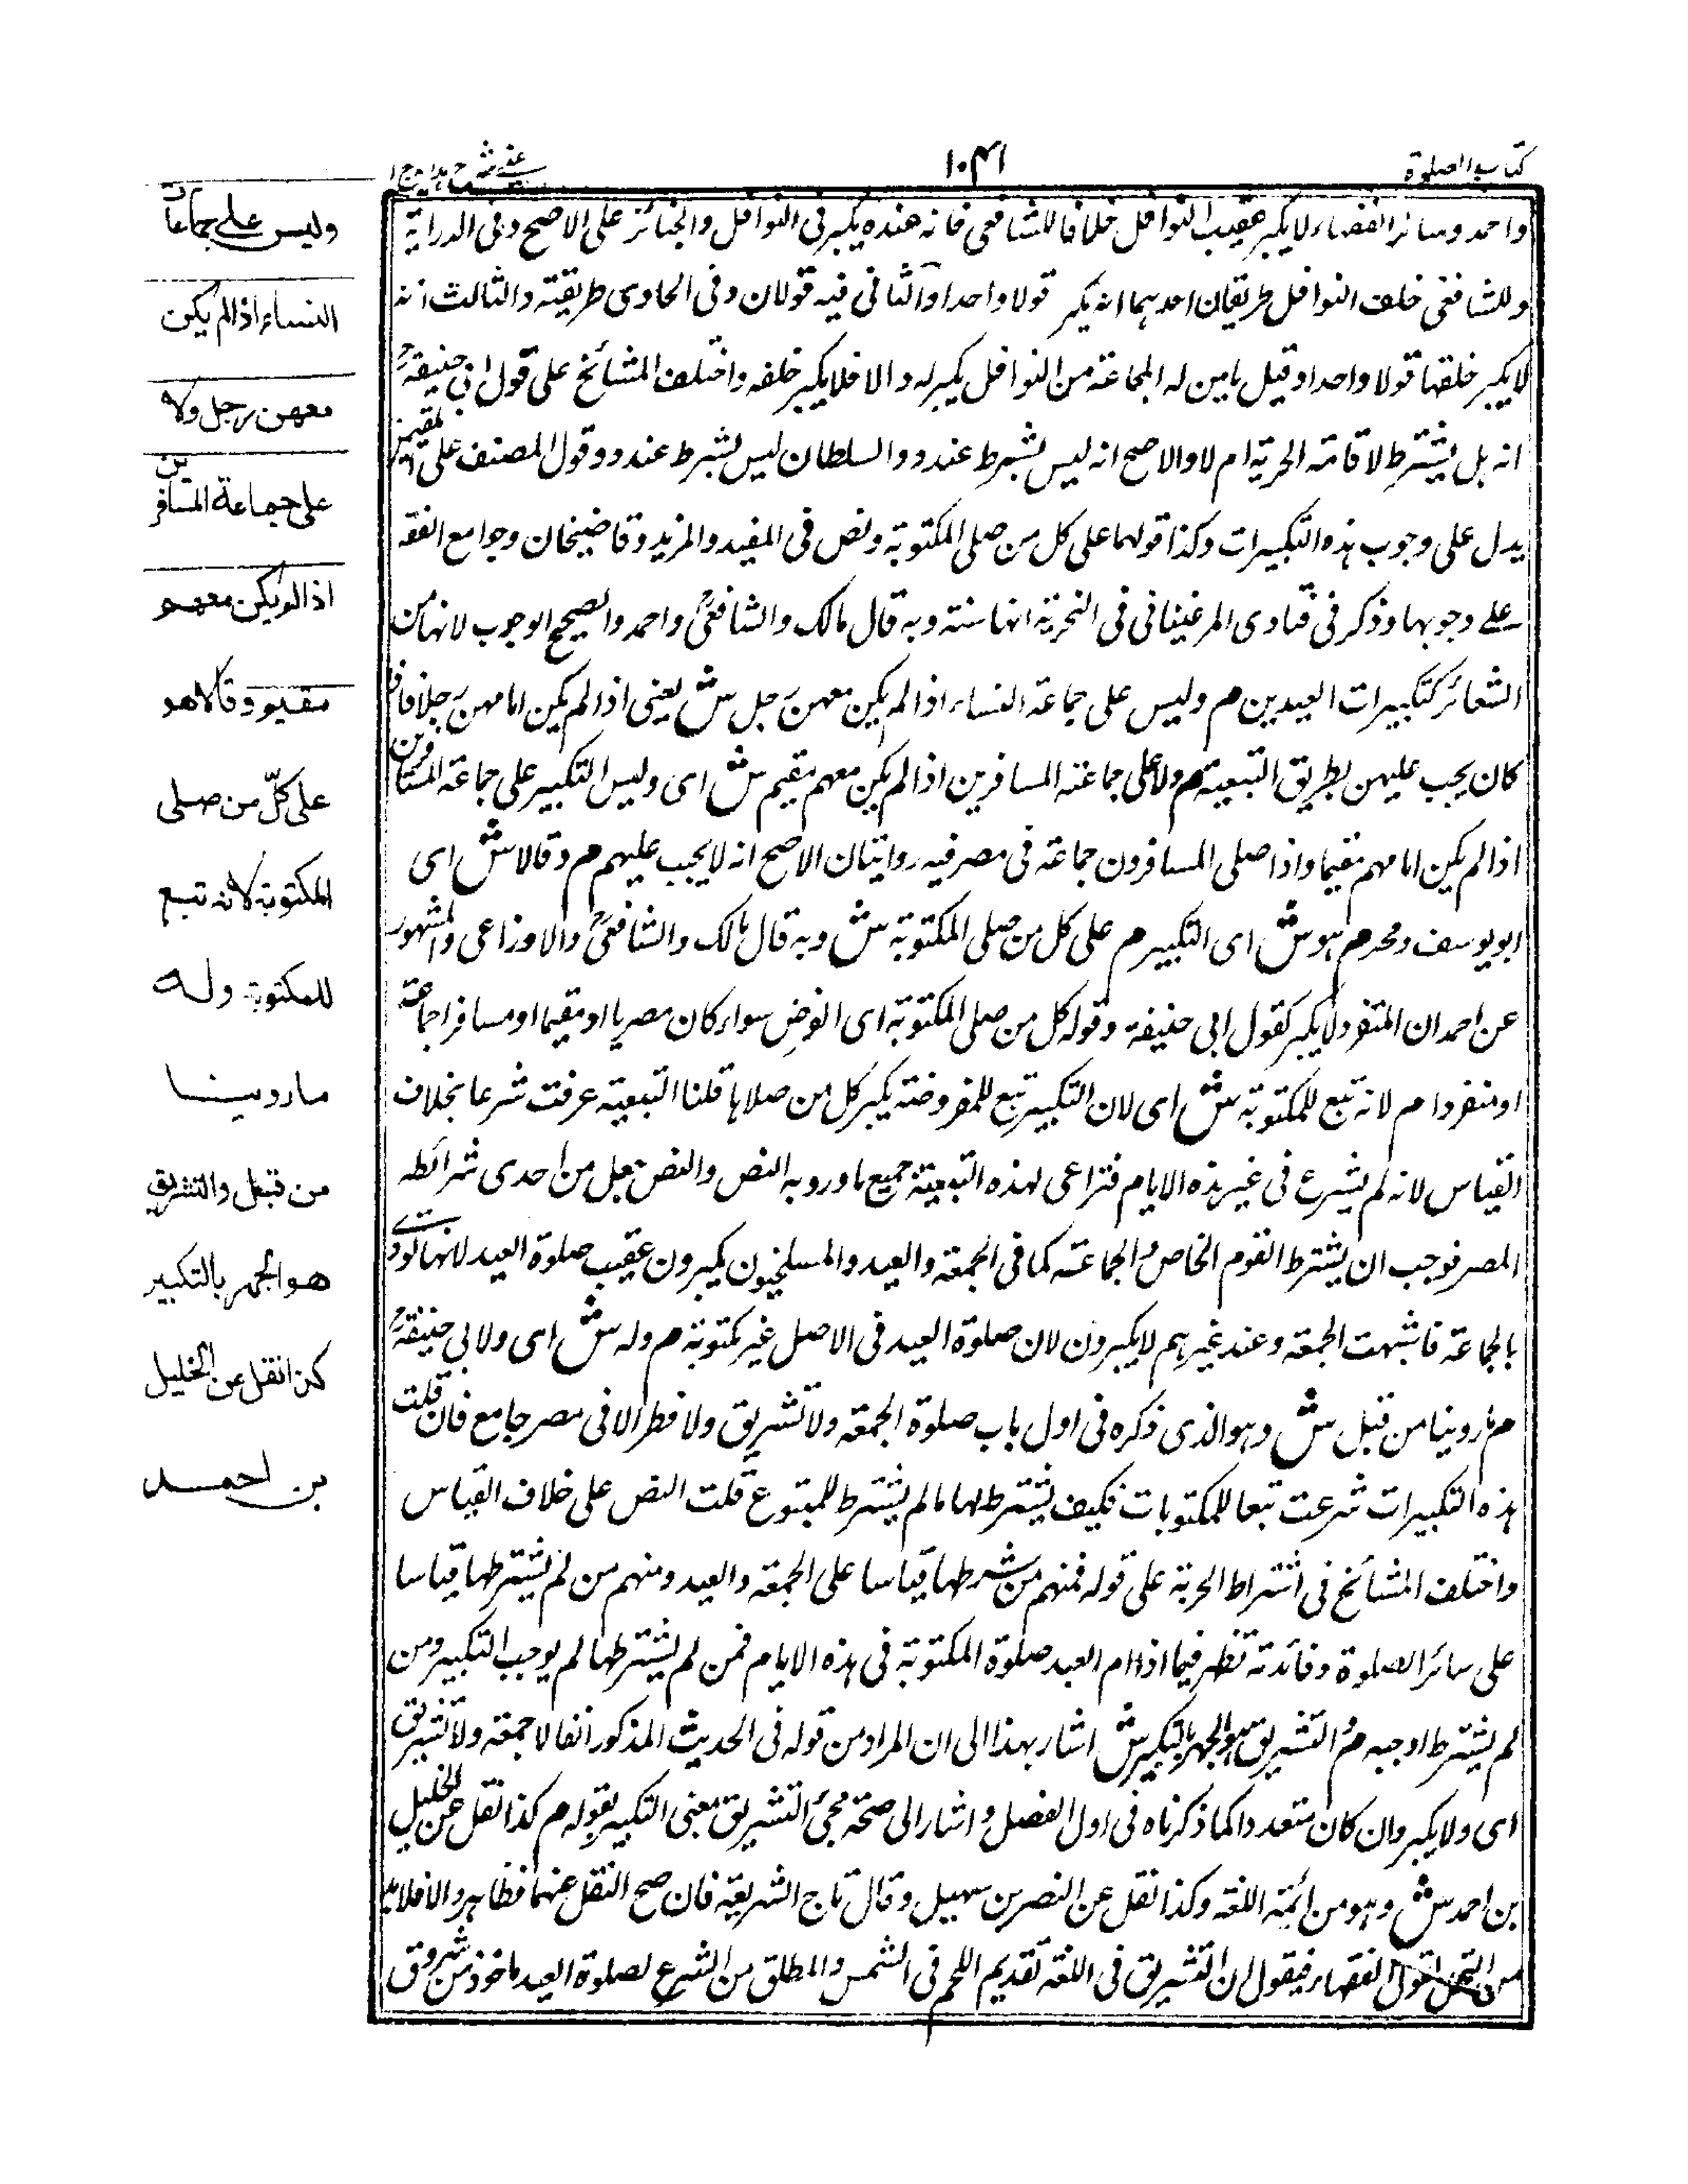 كتاب الصلوة
١٠٤١
عينى شرح هدايه ج ١
واحمد وسائر الفقهاء لا يكبر عقيب النوافل خلافا للشافعى فانه عنده يكبر فى النوافل والجنائز على الاصح وفى الدراية
وللشافعى خلف النوافل طريقان احدهما انه يكبر قولا واحدا والثانى فيه قولان وفى الحاوى طريقة والثالث انه
لا يكبر خلفها قولا واحدا وقيل ما سن له الجماعة من النوافل يكبر له والا فلا يكبر خلفه واختلف المشائخ على قول ابى حنيفةؒ
انه هل يشترط لاقامته الحرية ام لا والاصح انه ليس بشرط عنده والسلطان ليس بشرط عنده وقول المصنف على المقيمين
يدل على وجوب هذه التكبيرات وكذا قولهما على كل من صلى المكتوبة ونص فى المفيد والمزيد وقاضيخان وجوامع الفقه
على وجوبها وذكر فى فتاوى المرغينانى فى التحرية انها سنة وبه قال مالك والشافعىؒ واحمد والصحيح الوجوب لانها من
الشعائر كتكبيرات العيدين م وليس على جماعة النساء اذا لم يكن معهن رجل ش يعنى اذا لم يكن امامهن رجلا فاذا
كان يجب عليهن بطريق التبعية م ولا على جماعة المسافرين اذا لم يكن معهم مقيم ش اى وليس التكبير على جماعة المسافرين
اذا لم يكن امامهم مقيما واذا صلى المسافرون جماعة فى مصر فيه روايتان الاصح انه لا يجب عليهم م وقالا ش اى
ابويوسف ومحمد م هو ش اى التكبير م على كل من صلى المكتوبة ش وبه قال مالك والشافعىؒ والاوزاعى والمشهور
عن احمد ان المنفرد لا يكبر كقول ابى حنيفة وقوله كل من صلى المكتوبة اى الفرض سواء كان مصريا او مقيما او مسافرا جماعة
او منفردا م لانه تبع للمكتوبة ش اى لان التكبير تبع للمفروضة يكبر كل من صلاها قلنا التبعية عرفت شرعا بخلاف
القياس لانه لم يشرع فى غير هذه الايام فتراعى لهذه التبعية جميع ما ورد به النص والنص جعل من احدى شرائطه
المصر فوجب ان يشترط القوم الخاص والجماعة كما فى الجمعة والعيد والمسلخيون يكبرون عقيب صلوة العيد لانها تودى
بالجماعة فاشبهت الجمعة وعند غيرهم لا يكبرون لان صلوة العيد فى الاصل غير مكتوبة م وله ش اى ولابى حنيفةؒ
م ما روينا من قبل ش وهو الذى ذكره فى اول باب صلوة الجمعة ولا تشريق ولا فطر الا فى مصر جامع فان قلت
هذه التكبيرات شرعت تبعا للمكتوبات فكيف يشترط لها ما لم يشترط للمتبوع قلت النص على خلاف القياس
واختلف المشائخ فى اشتراط الحرية على قوله فمنهم من شرطها قياسا على الجمعة والعيد ومنهم من لم يشترطها قياسا
على سائر الصلوة وفائدته تظهر فيما اذا ام العبد صلوة المكتوبة فى هذه الايام فمن لم يشترطها لم يوجب التكبير ومن
لم يشترط اوجبه م والتشريق هو الجهر بالتكبير ش اشار بهذا الى ان المراد من قوله فى الحديث المذكور انفا لا جمعة ولا تشريق
اى ولا يكبر وان كان متعددا كما ذكرناه فى اول الفصل واشار الى صحة مجئ التشريق بمعنى التكبير بقوله م كذا نقل عن الخليل
بن احمد ش وهو من ائمة اللغة وكذا نقل عن النضر بن سهيل وقال تاج الشريعة فان صح النقل عنهما فظاهر والا فلا بد
من لقول الفقهاء فيقول ان التشريق فى اللغة تقديم اللحم فى الشمس والمطلق من الشرع لصلوة العيد ماخوذ من شروق
وليس على جماعات
النساء اذا لم يكن
معهن رجل ولا
على جماعة المسافرين
اذا لم يكن معهم
مقيم وقالا هو
على كلّ من صلى
المكتوبة لانه تبع
للمكتوبة وله
ما روينا
من قبل والتشريق
هو الجهر بالتكبير
كذا نقل عن الخليل
بن احمد